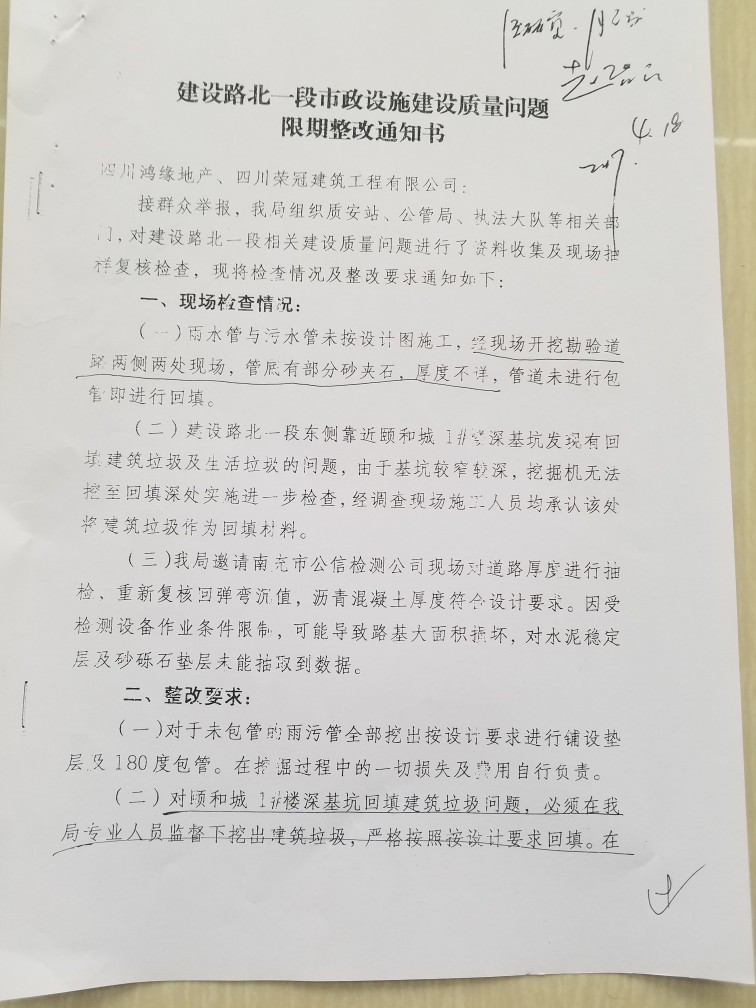 4.18
建设路北一段市政设施建设质量问题
限期整改通知书
四川鸿缘地产、四川荣冠建筑工程有限公司：
接群众举报，我局组织质安站、公管局、执法大队等相关部
门，对建设路北一段相关建设质量问题进行了资料收集及现场抽
样复核检查，现将检查情况及整改要求通知如下：
一、现场检查情况：
（一）雨水管与污水管未按设计图施工，经现场开挖勘验道
路两侧两处现场，管底有部分砂夹石，厚度不详，管道未进行包
管即进行回填。
（二）建设路北一段东侧靠近颐和城 1#楼深基坑发现有回
填建筑垃圾及生活垃圾的问题，由于基坑较窄较深，挖掘机无法
挖至回填深处实施进一步检查，经调查现场施工人员均承认该处
将建筑垃圾作为回填材料。
（三）我局邀请南充市公信检测公司现场对道路厚度进行抽
检、重新复核回弹弯沉值，沥青混凝土厚度符合设计要求。因受
检测设备作业条件限制，可能导致路基大面积损坏，对水泥稳定
层及砂砾石垫层未能抽取到数据。
二、整改要求：
（一）对于未包管的雨污管全部挖出按设计要求进行铺设垫
层及 180 度包管。在挖掘过程中的一切损失及费用自行负责。
（二）对颐和城 1#楼深基坑回填建筑垃圾问题，必须在我
局专业人员监督下挖出建筑垃圾，严格按照按设计要求回填。在